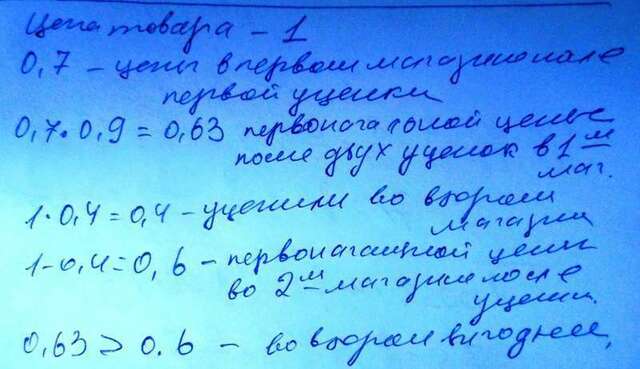 Цена товара - 1
0,7 - цены в первом магазине после
первой уценки
0,7·0,9 = 0,63 первоначальной цены
после двух уценок в 1м
маг.
1·0,4 = 0,4 - уценили во втором
магазин
1-0,4=0,6 - первоначальной цены
во 2м магазине после
уценки.
0,63 > 0.6 - во втором выгоднее,